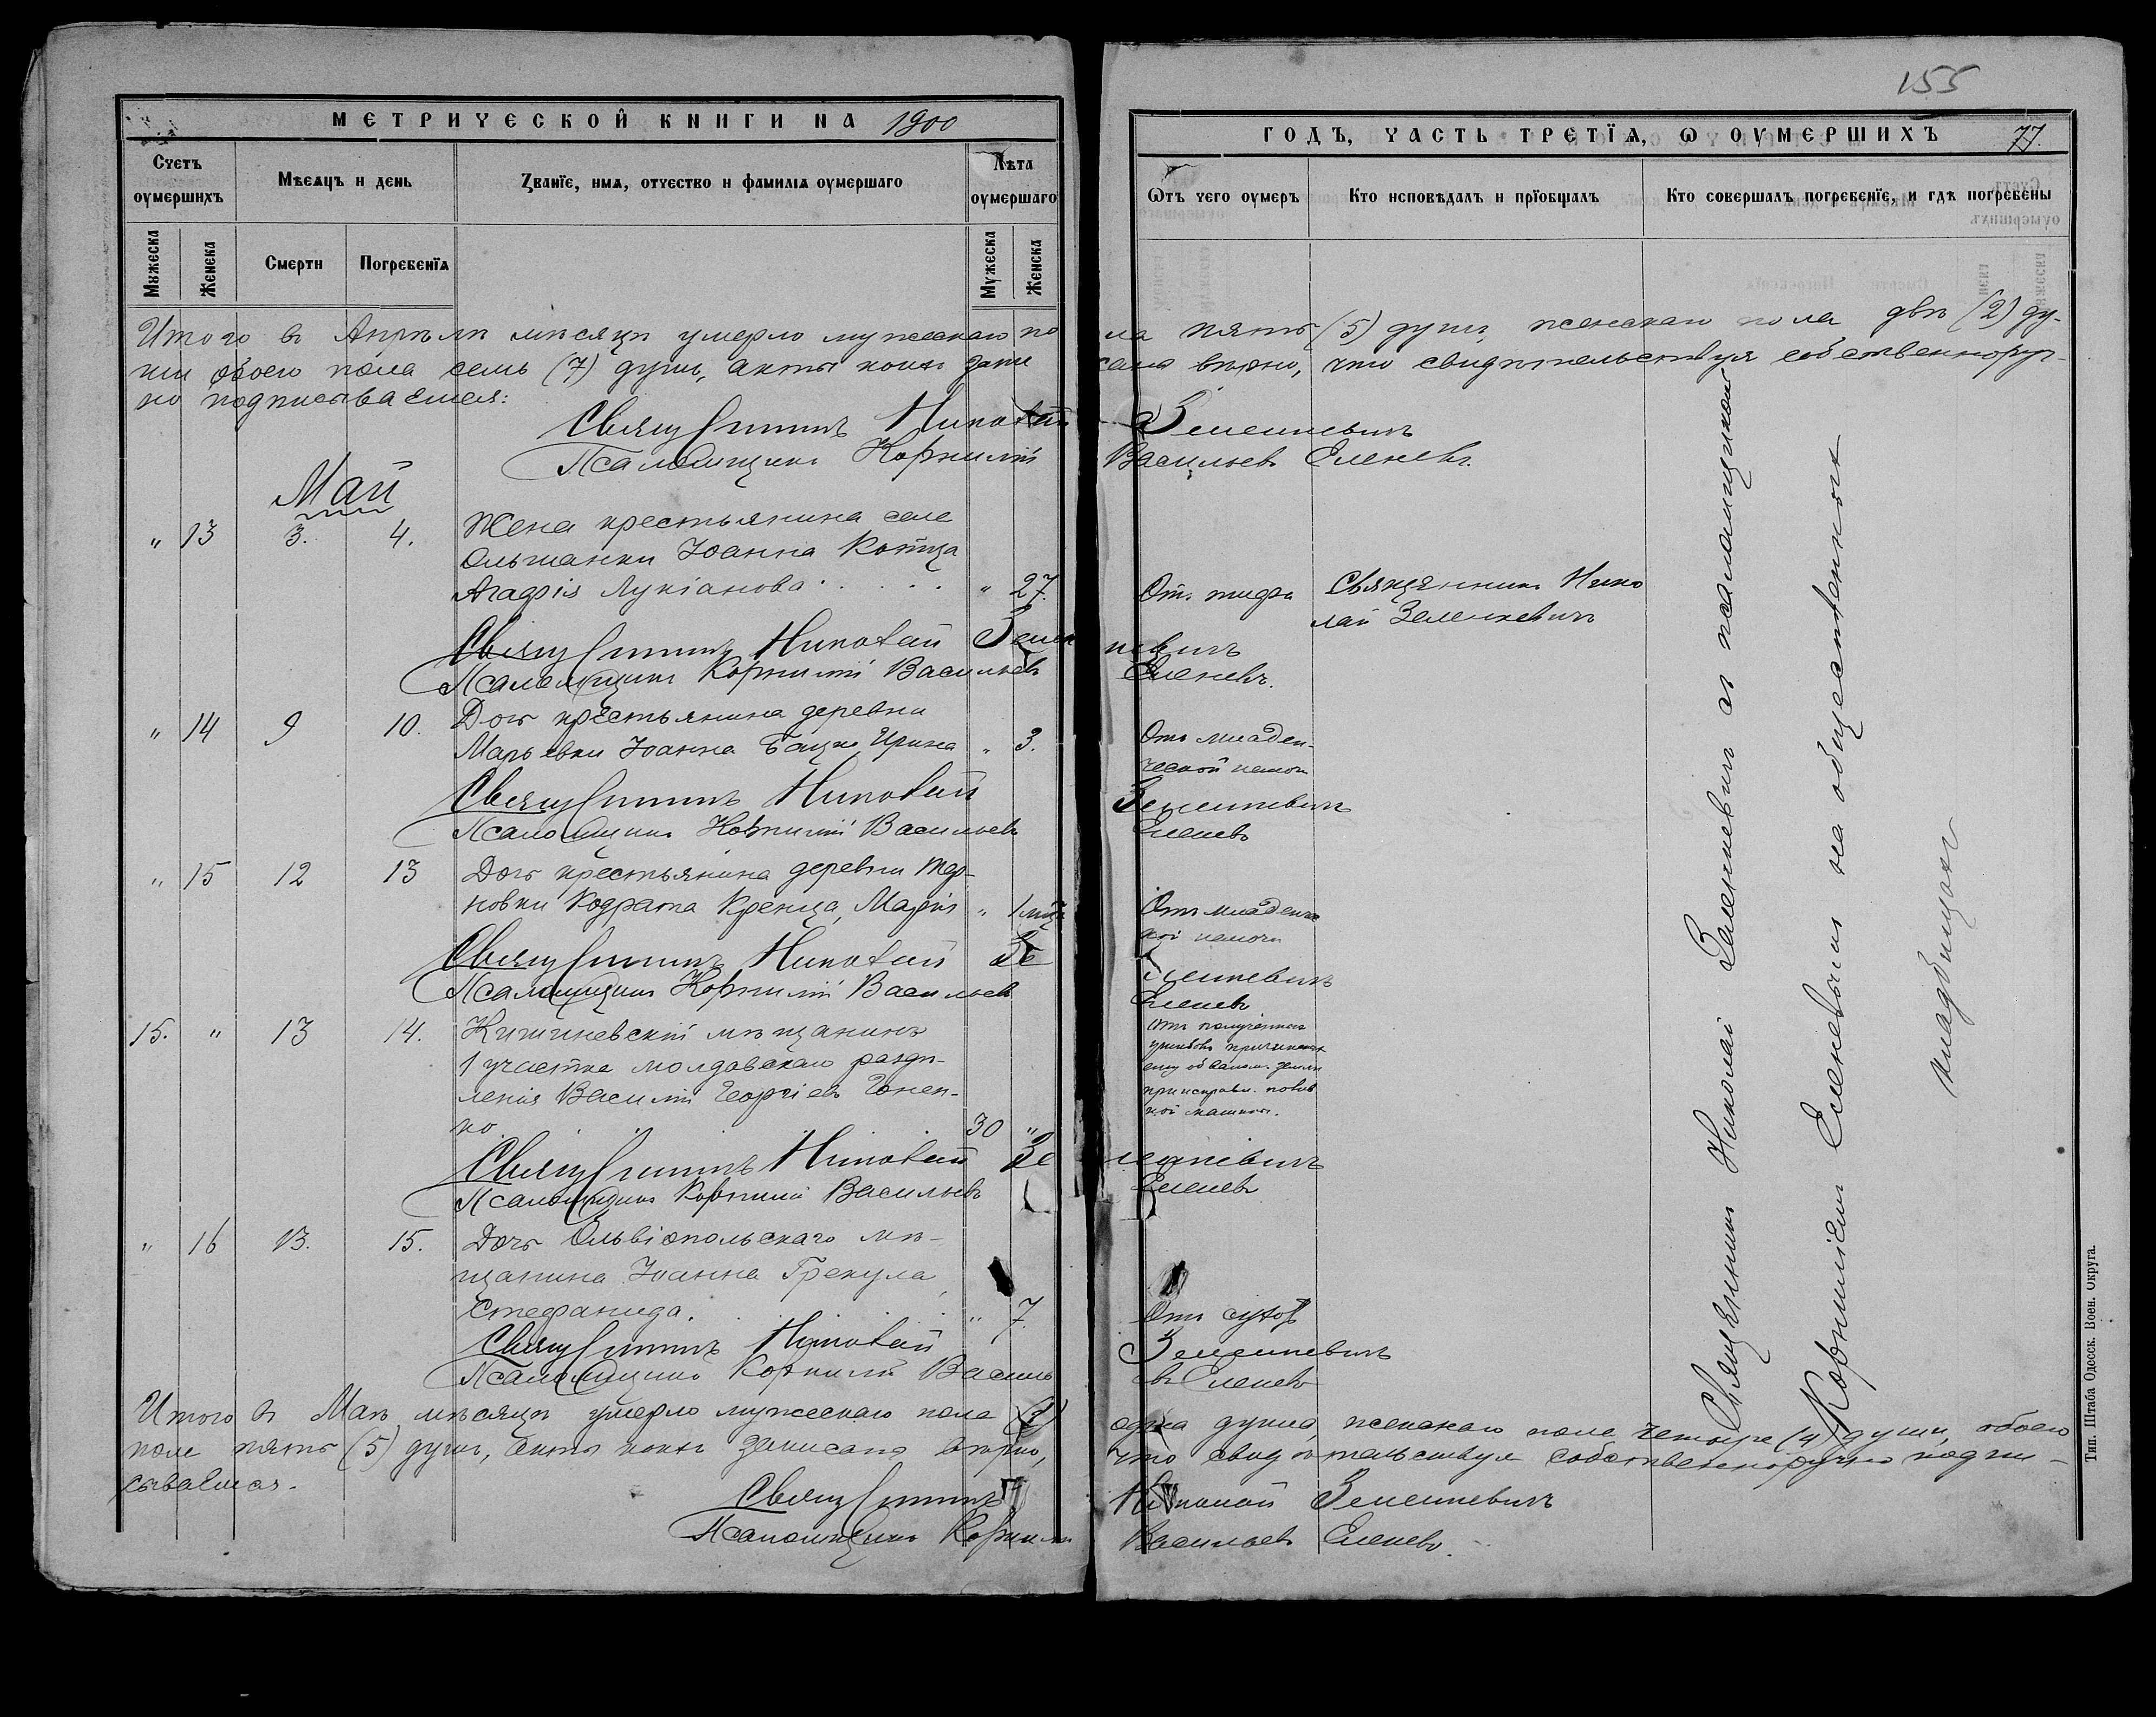 155
МЕТРИЧЕСКОЙ КНИГИ НА 1900
ГОДЪ, ЧАСТЬ ТРЕТІЯ, Ѡ ОУМЕРШИХЪ 77.
Счетъ оумершихъ
Мѣсяцъ и день
Званїе, имѧ, отчество и фамилїѧ оумершаго
Лѣта оумершаго
Ѿтъ чего оумеръ
Кто исповѣдалъ и прїобщалъ
Кто совершалъ погребенїе, и гдѣ погребены
Мужеска
Женска
Смерти
Погребенїѧ
Мужеска
Женска
Итого въ Апрѣлѣ мѣсяцѣ умерло мужескаго по
ла пять (5) душъ, женскаго пола двѣ (2) ду-
ши обоего пола семь (7) душъ, акты коихъ запи
саны вѣрно, что свидѣтельствуя собственноруч-
но подписываемся:
Священникъ Николай Зеленкевичъ
Псаломщикъ Корнилій Васильевъ Еленевъ.
Май
" 13 3. 4. Жена крестьянина села
Ольшанки Іоанна Котца
Агафія Лукіанова " 27. Отъ тифа Священникъ Нико
лай Зеленкевичъ
Священникъ Николай Зеленкевичъ
Псаломщикъ Корнилій Васильевъ Еленевъ.
" 14 9 10. Дочь крестьянина деревни
Марьевки Іоанна Бацко, Ирина " 3. Отъ младен-
ческой немощи
Священникъ Николай Зеленкевичъ
Псаломщикъ Корнилій Васильевъ Еленевъ
" 15 12 13 Дочь крестьянина деревни Тер-
новки Кодрата Кренца, Марія " 1 мѣс Отъ младенче
ской немочи
Священникъ Николай Зеленкевичъ
Псаломщикъ Корнилій Васильевъ Еленевъ
15. " 13 14. Кишиневскій мѣщанинъ
1 участка молдавскаго разде-
ленія Василій Георгіевъ Гонен-
ко 30 "
Отъ полученныхъ
ушибовъ причиненныхъ
ему обваломъ земли
при исправл.
машины.
Священникъ Николай Зеленкевичъ
Псаломщикъ Корнилій Васильевъ Еленевъ
" 16 13. 15. Дочь Ольвіопольскаго мѣ-
щанина Іоанна Грекула,
Стефанида. " 7. Отъ сухот
Священникъ Николай Зеленкевичъ
Псаломщикъ Корнилій Васильевъ Еленевъ
Священникъ Николай Зеленкевичъ съ псаломщикомъ
Корниліемъ Еленевымъ на общественномъ
кладбищѣ
Итого въ Маѣ мѣсяцѣ умерло мужескаго пола (1)
одна душа, женскаго пола четыре (4) души, обоего
пола пять (5) душъ, акты коихъ записаны вѣрно,
что свидѣтельствуя собственноручно подпи-
сываемся.
Священникъ Николай Зеленкевичъ
Псаломщикъ Корнилій Васильевъ Еленевъ.
Тип. Штаба Одесск. Воен. Округа.